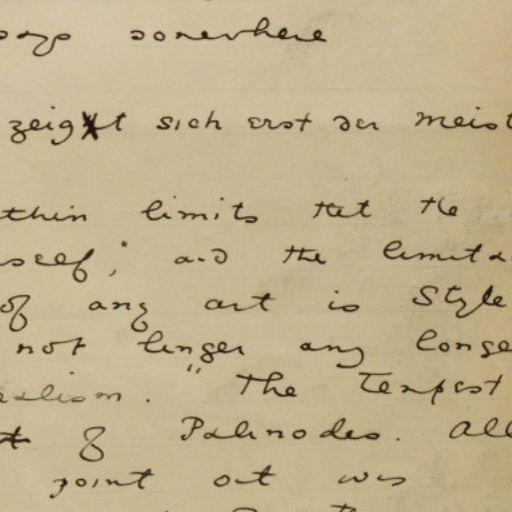 says somewhere
zeigt sich erst der Meist
thin limits that the
self, and the limita
of any art is Style
not linger any longe
ealism. "The Tempest
t of Palinodes. All
point out was